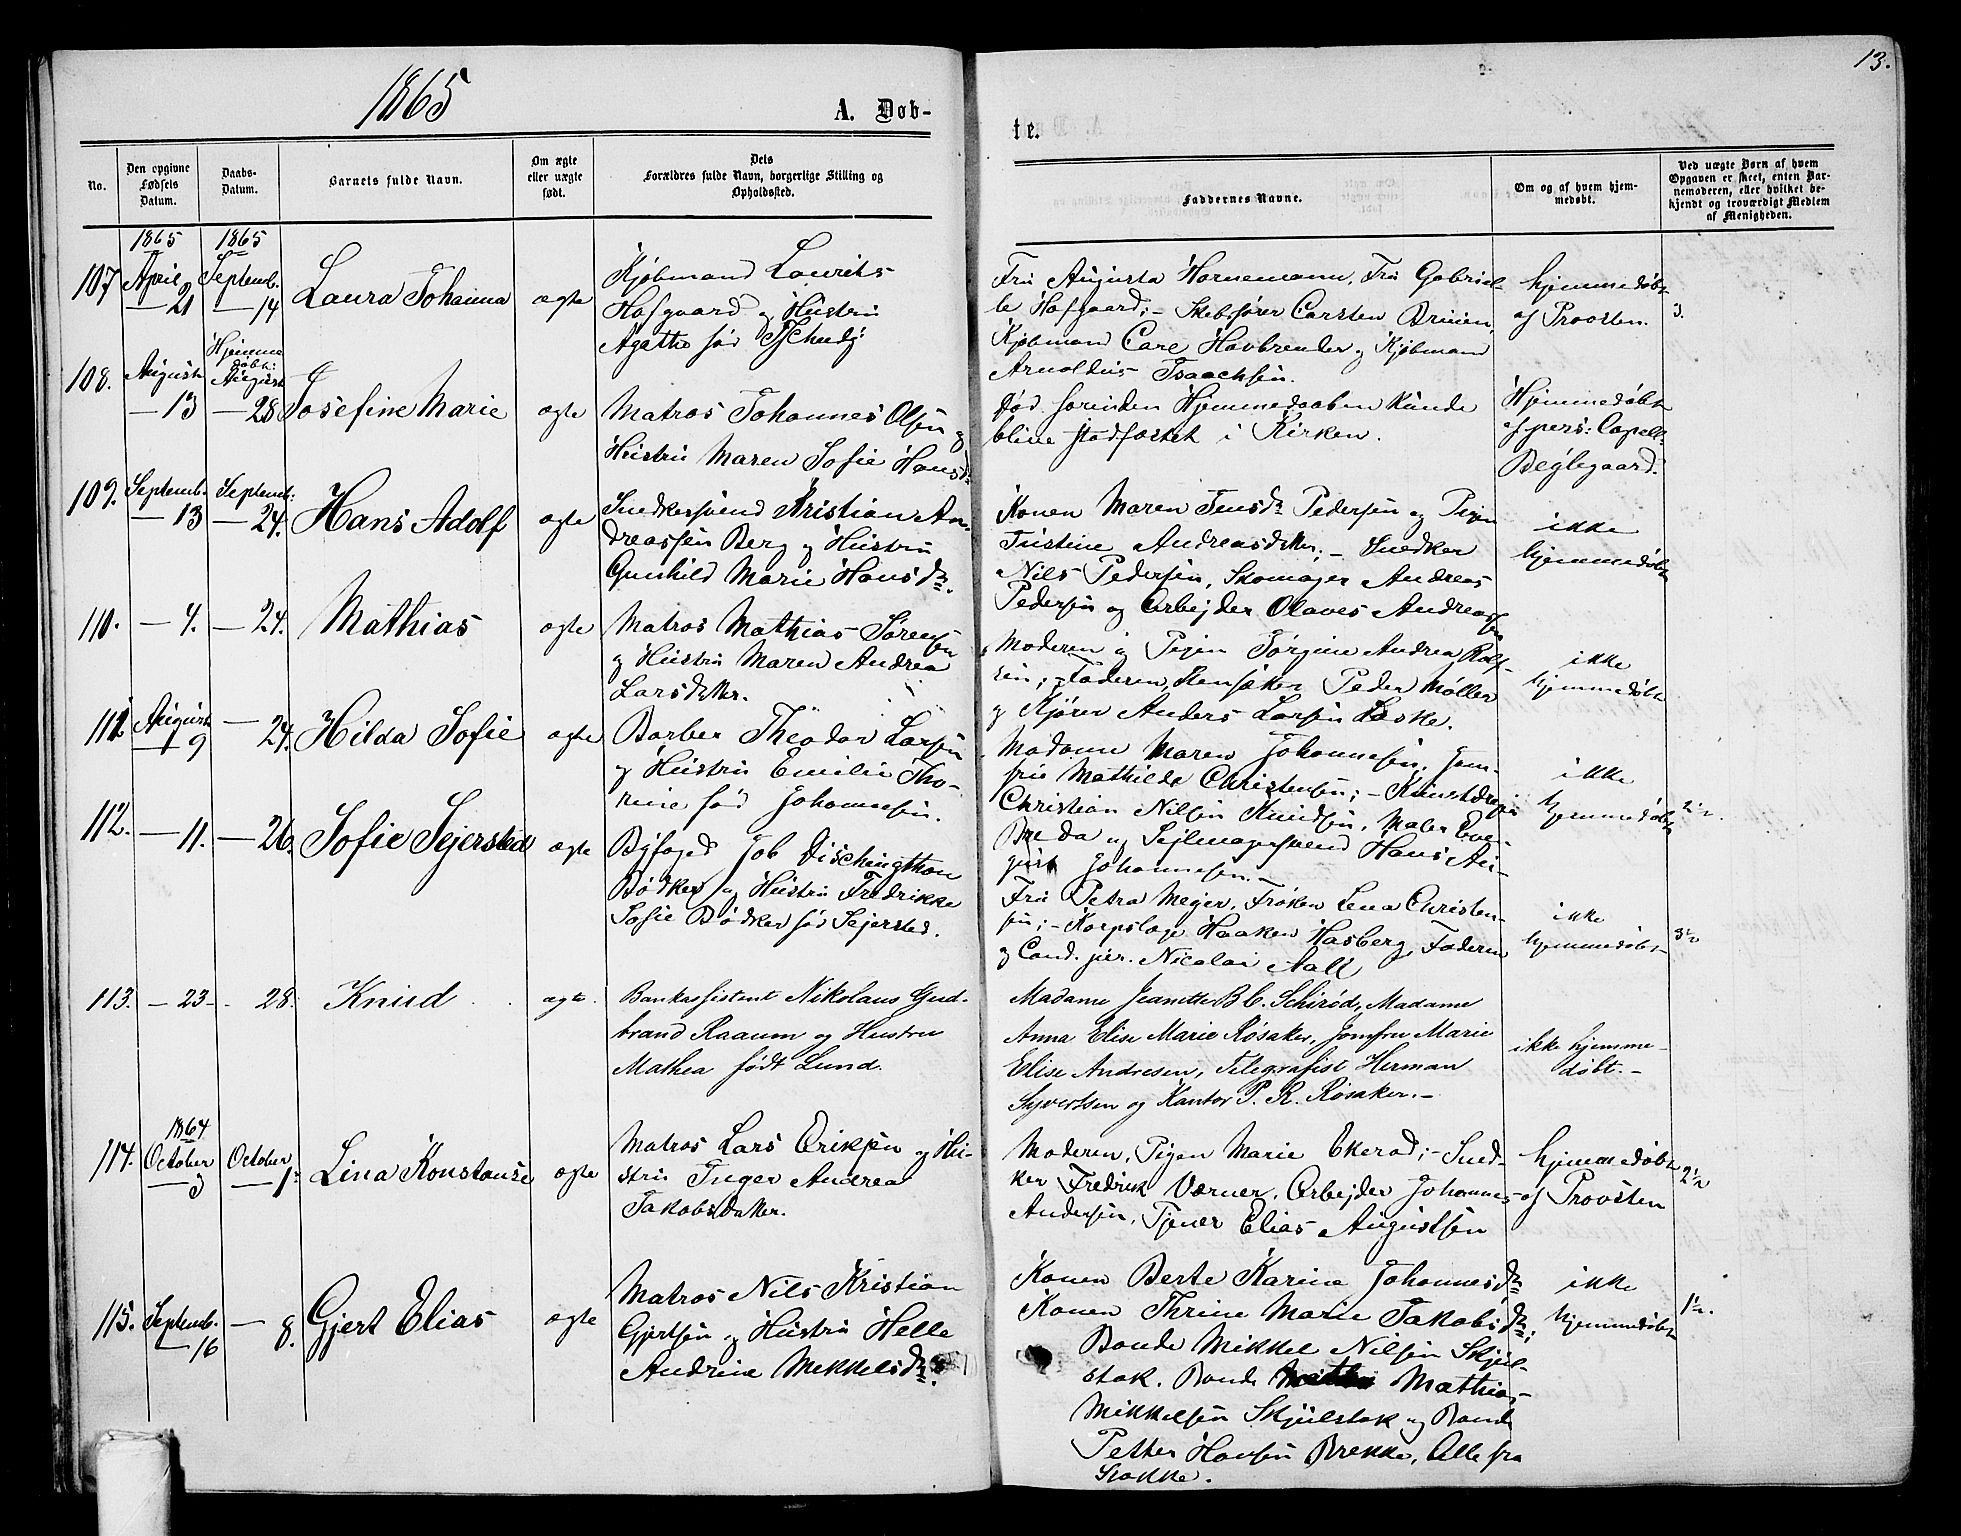 13.
1865
A. Døb-
te.
No.
Den opgivne
Fødsels
Datum.
Daabs-
Datum.
Barnets fulde Navn.
Om ægte
eller uægte
født.
Dets
Forældres fulde Navn, borgerlige Stilling og
Opholdssted.
Faddernes Navne.
Om og af hvem hjem-
medøbt.
Ved uægte Børn af hvem
Opgaven er skeet, enten Bar-
nemoderen, eller hvilket be-
kjendt og troværdigt Medlem
af Menigheden.
107.
1865
April
— 21
1865
Septemb.
— 14
Laura Johanna
ægte
Kjøbmand Laurits
Hofgaard og Hustru
Agathe fød Tschudj
Fru Augusta Hornemann, Fru Gabriel-
le Hofgaard; - Skibsfører Carsten Bruun,
Kjøbmand Carl Havbrender og Kjøbmand
Arnoldus Isaachsen.
hjemmedøbt
af Provsten.
3.
108.
August
— 13
Hjemme
døbt:
August
— 28
Josefine Marie
ægte
Matros Johannes Olsen og
Hustru Maren Sofie Hansdr
død forinden Hjemmedaaben kunde
blive stadfæstet i Kirken.
Hjemmedøbt
af pers: Capell.
Beglegaard.
109.
Septemb.
— 13
Septemb.
— 24.
Hans Adolf
ægte
Snedkersvend Kristian An-
dreassen Berg og Hustru
Gunhild Marie Hansdr.
Konen Maren Jensdr Pedersen og Pigen
Justine Andreasdatter; - Snedker
Nils Pedersen, Skomager Andreas
Pedersen og Arbejder Olaves Andreassen
ikke
hjemmedøbt
110.
— 4.
— 24.
Mathias
ægte
Matros Mathias Sørensen
og Hustru Maren Andrea
Larsdatter.
Moderen og Pigen Jørgine Andrea Rolf-
sen; - Faderen, Peder Møller
og Kjører Anders Larsen Løske.
ikke
hjemmedøbt
111.
August
— 19
— 24.
Hilda Sofie
ægte
Barber Theodor Larsen
og Hustru Emilie Tho-
rine fød Johannesen.
Madame Maren Johannesen, Jom-
fru Mathilde Christensen; -
Christian Nilsen Knudsen, Maler Eve-
og Sejlmagersvend Hans Au-
gust Johannesen. -
ikke
hjemmedøbt
2½.
112.
— 11.
— 26.
Sofie Sejersted
ægte
Byfoged Job Dischingthon
Bødker og Hustru Fredrikke
Sofie Bødker fød Sejersted.
Fru Petra Mejer, Frøken Lena Christen-
sen; - Korpslæge Haaken Hasberg, Faderen
og Cand. jur. Nicolai Aall
ikke
hjemmedøbt
3½
113.
— 23 -
- 28.
Knud
ægte.
Bankassistent Nikolaus Gud-
brand Raaum og Hustru
Mathea født Lund.
Madame Jeanette B C. Schirød, Madame
Anna Elise Marie Røsaker, Jomfru Marie
Elise Andresen, Telegrafist Herman
Syvertsen og Kantor P. R. Røsaker. -
ikke hjemme-
døbt. -
114.
1864
October
— 3
October
— 1.
Lina Konstanse
ægte
Matros Lars Eriksen og Hu-
stru Inger Andrea
Jakobsdatter.
Moderen, Pigen Marie Ekerod; - Sned-
ker Fredrik Værner, Arbejder Johannes
Andersen, Tjener Elias Augustsen
hjemmedøbt
af Provsten
2½
115.
Septemb.
— 16
— 8.
Gjert Elias
ægte
Matros Nils Kristian
Gjertsen og Hustru Helle
Andrine Mikkelsdr.
Konen Berte Karine Johannesdr,
Konen Thrine Marie Jakobsdr;
Bonde Mikkel Nilsen Skjel-
stok, Bonde Mathias
Mikkelsen Skjulstok og Bonde
Petter Hansen Brekke, Alle fra
Stokke.
ikke
hjemmedøbt
1½.